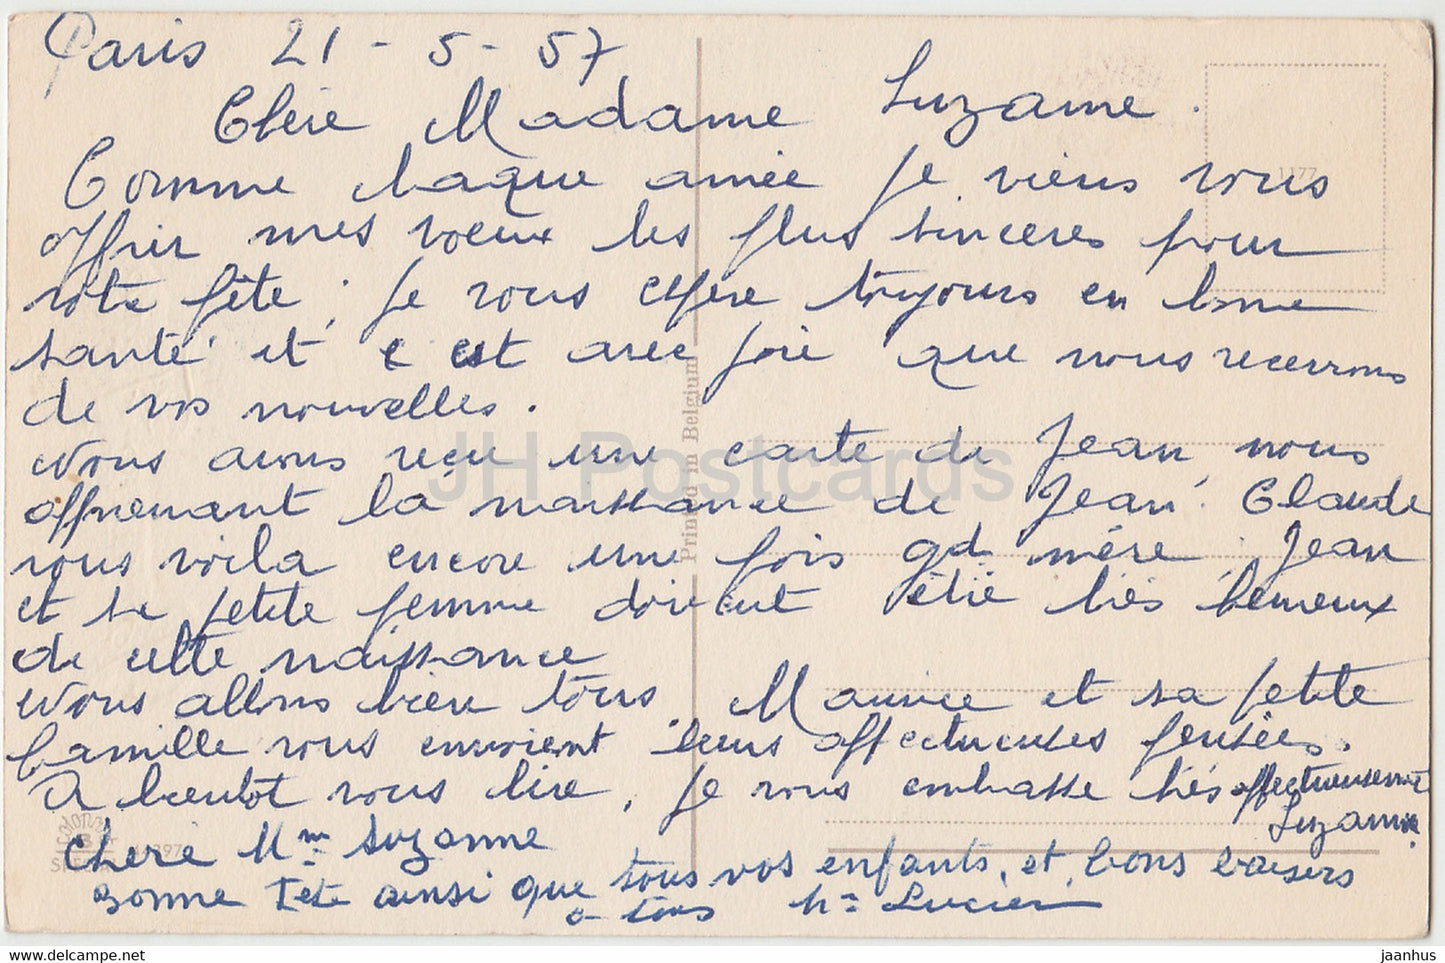 Paris 21-5-57
Chère Madame Suzanne.
Comme chaque année je viens vous
offrir mes voeux les plus sincères pour
votre fête ; je vous espère toujours en bonne
santé et c est avec joie que nous recevrons
de vos nouvelles.
Nous avons reçu une carte de Jean nous
apprenant la naissance de Jean-Claude
vous voila encore une fois gd mère. Jean
et sa petite femme doivent être très heureux
de cette naissance
Nous allons bien tous, Maurice et sa petite
famille vous envoient leurs affectueuses pensées.
A bientôt vous lire, je vous embrasse très affectueusement
Suzanne.
Chère Mme Suzanne
Bonne Fête ainsi que tous vos enfants, et bons baisers
a tous Mr Lucien
1177
Printed in Belgium
JH Postcards
jaanhus